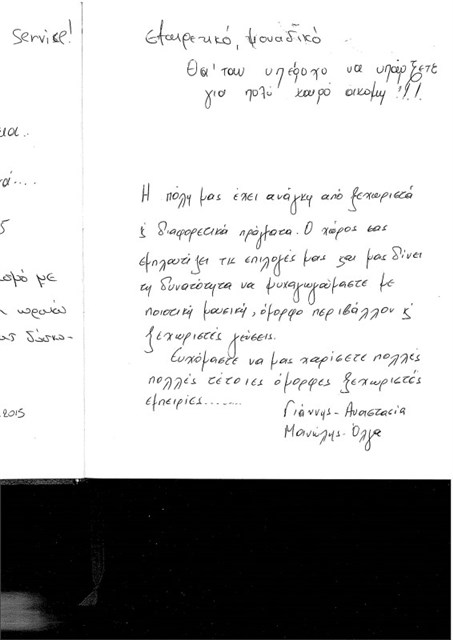 Service!
εξαιρετικό, μοναδικό
Θα'ταν υπέροχο να υπάρξετε
για πολύ καιρό ακόμη!!!
Η πόλη μας έχει ανάγκη από ξεχωριστά
& διαφορετικά πράγματα. Ο χώρος σας
εμπλουτίζει τις επιλογές μας και μας δίνει
τη δυνατότητα να ψυχαγωγούμαστε με
ποιοτική μουσική, όμορφο περιβάλλον &
ξεχωριστές γεύσεις.
Ευχόμαστε να μας χαρίσετε πολλές
πολλές τέτοιες όμορφες ξεχωριστές
εμπειρίες........
Γιάννης - Αναστασία
Μανώλης - Όλγα
5
σμό με
ωραίο
2015